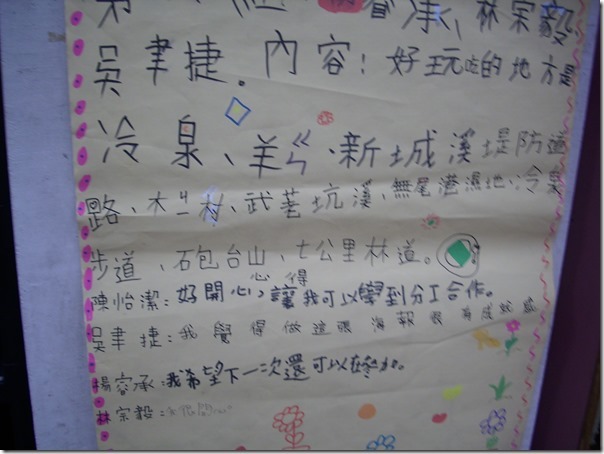 林宗毅
吳聿捷。內容：好玩的地方是
冷泉、羊ㄣ、新城溪堤防道
路、木ㄐㄧ村、武荖坑溪、無尾港濕地、冷泉
步道、石砲台山、七公里林道。
心得
陳怡潔：好開心，讓我可以學到分工合作。
吳聿捷：我覺得做這張海報很有成就感
楊容承：我希望下一次還可以在參加。
林宗毅：